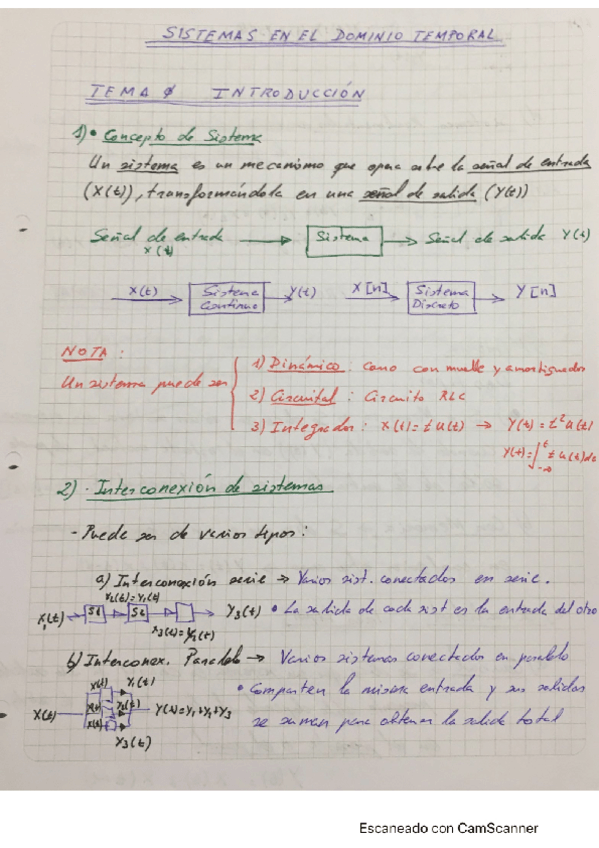 SISTEMAS EN EL DOMINIO TEMPORAL
TEMA 0 INTRODUCCIÓN
1) • Concepto de Sistema
Un sistema es un mecanismo que opera sobre la señal de entrada
(X(t)), transformándola en una señal de salida (Y(t))
Señal de entrada → Sistema → Señal de salida Y(t)
X(t)
X(t) → Sistema Continuo → Y(t) X[n] → Sistema Discreto → Y[n]
NOTA:
Un sistema puede ser
1) Dinámico: Como con muelle y amortiguador
2) Circuital: Circuito RLC
3) Integrador: X(t)=t u(t) → Y(t)=t² u(t)
Y(t)=∫_{-∞}^{t} t u(t) dt
2) • Interconexión de sistemas
- Puede ser de varios tipos:
a) Interconexión serie → Varios sist. conectados en serie.
X₂(t)=Y₁(t)
X₁(t) → S1 → S2 → Y₃(t) • La salida de cada sist es la entrada del otro
X₃(t)=Y₂(t)
b) Interconex. Paralelo → Varios sistemas conectados en paralelo
X(t) Y₁(t)
• Comparten la misma entrada y sus salidas
X(t) X(t) Y₂(t) Y(t)=Y₁+Y₂+Y₃
se suman para obtener la salida total
X(t) Y₃(t)
Escaneado con CamScanner